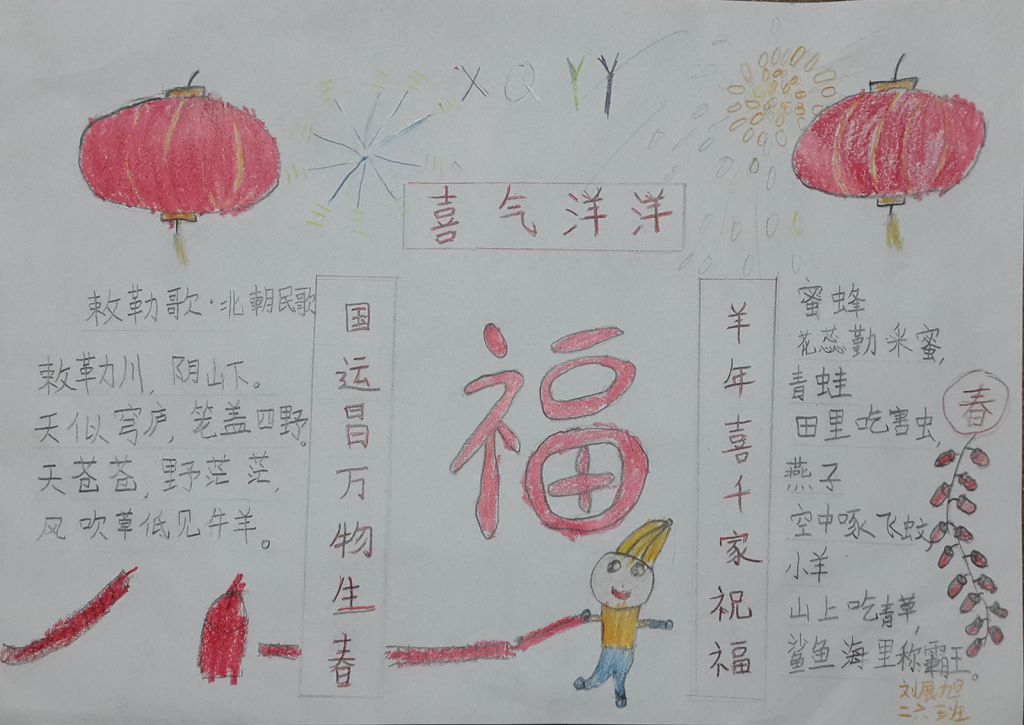 XQYY
喜气洋洋
敕勒歌·北朝民歌
敕勒川，阴山下。
天似穹庐，笼盖四野。
天苍苍，野茫茫，
风吹草低见牛羊。
国运昌万物生春
福
羊年喜千家祝福
蜜蜂
花蕊勤采蜜，
青蛙
田里吃害虫，
燕子
空中啄飞蚊，
小羊
山上吃青草，
鲨鱼海里称霸王。
春
刘展旭
二六班